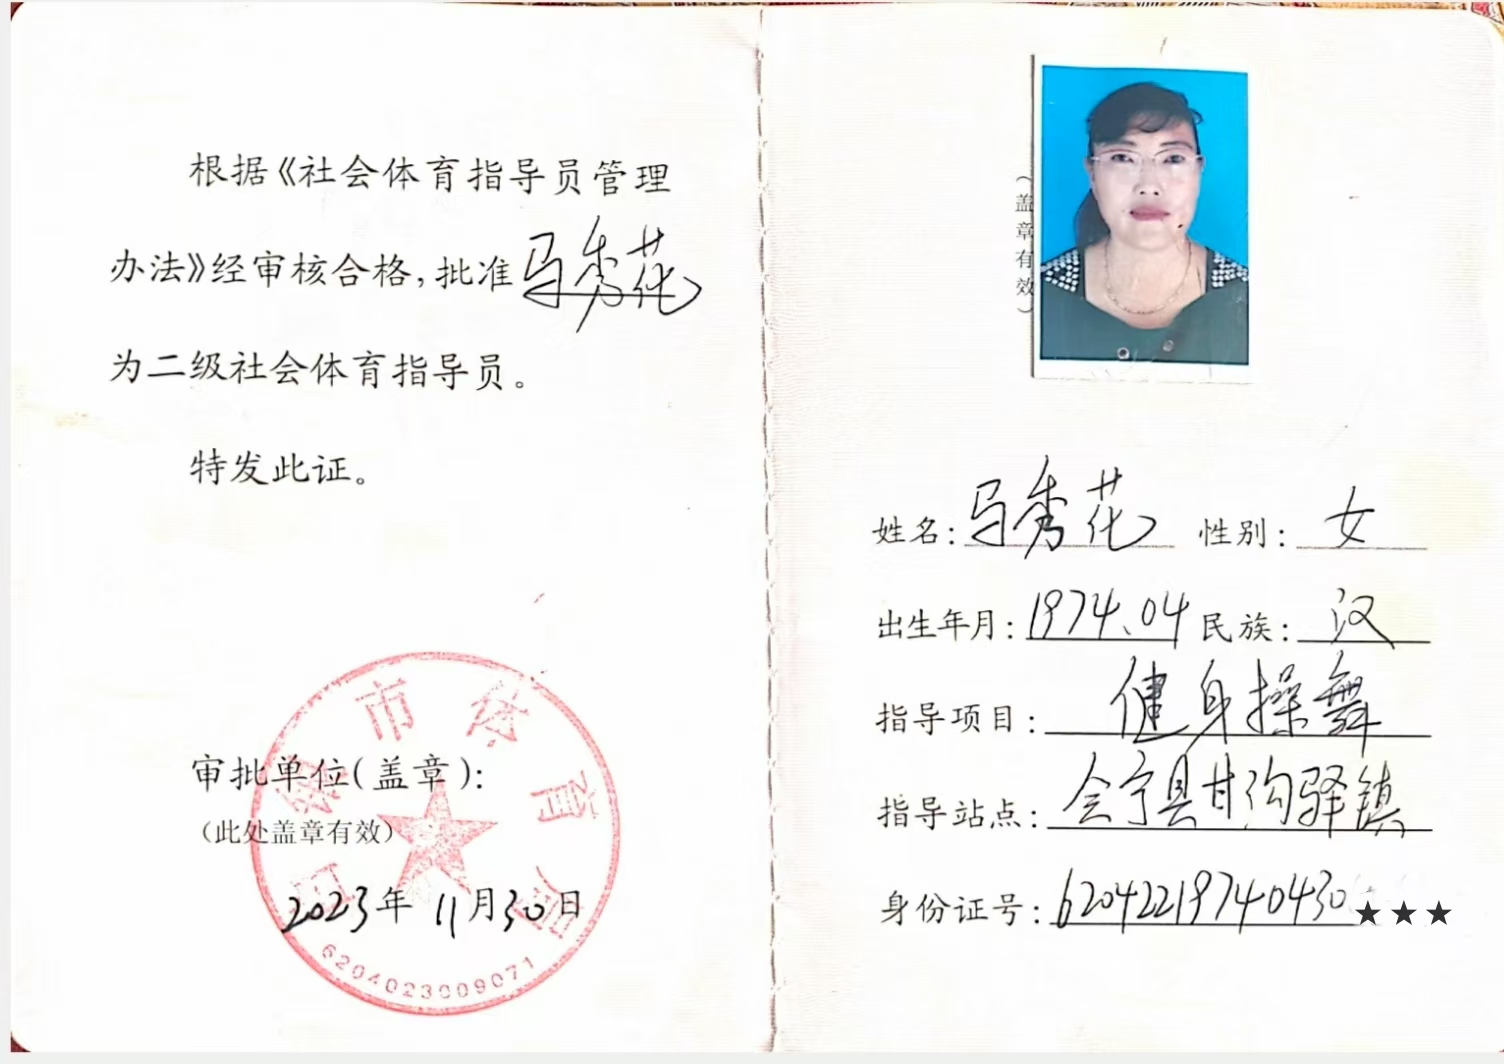 根据《社会体育指导员管理
办法》经审核合格，批准马秀花
为二级社会体育指导员。
特发此证。
审批单位(盖章):
(此处盖章有效)
2023年 11月30日
白银市体育局
6204023009071
(盖章有效)
姓名:马秀花 性别:女
出生年月:1974.04 民族:汉
指导项目:健身操舞
指导站点:会宁县甘沟驿镇
身份证号:62042219740430★★★